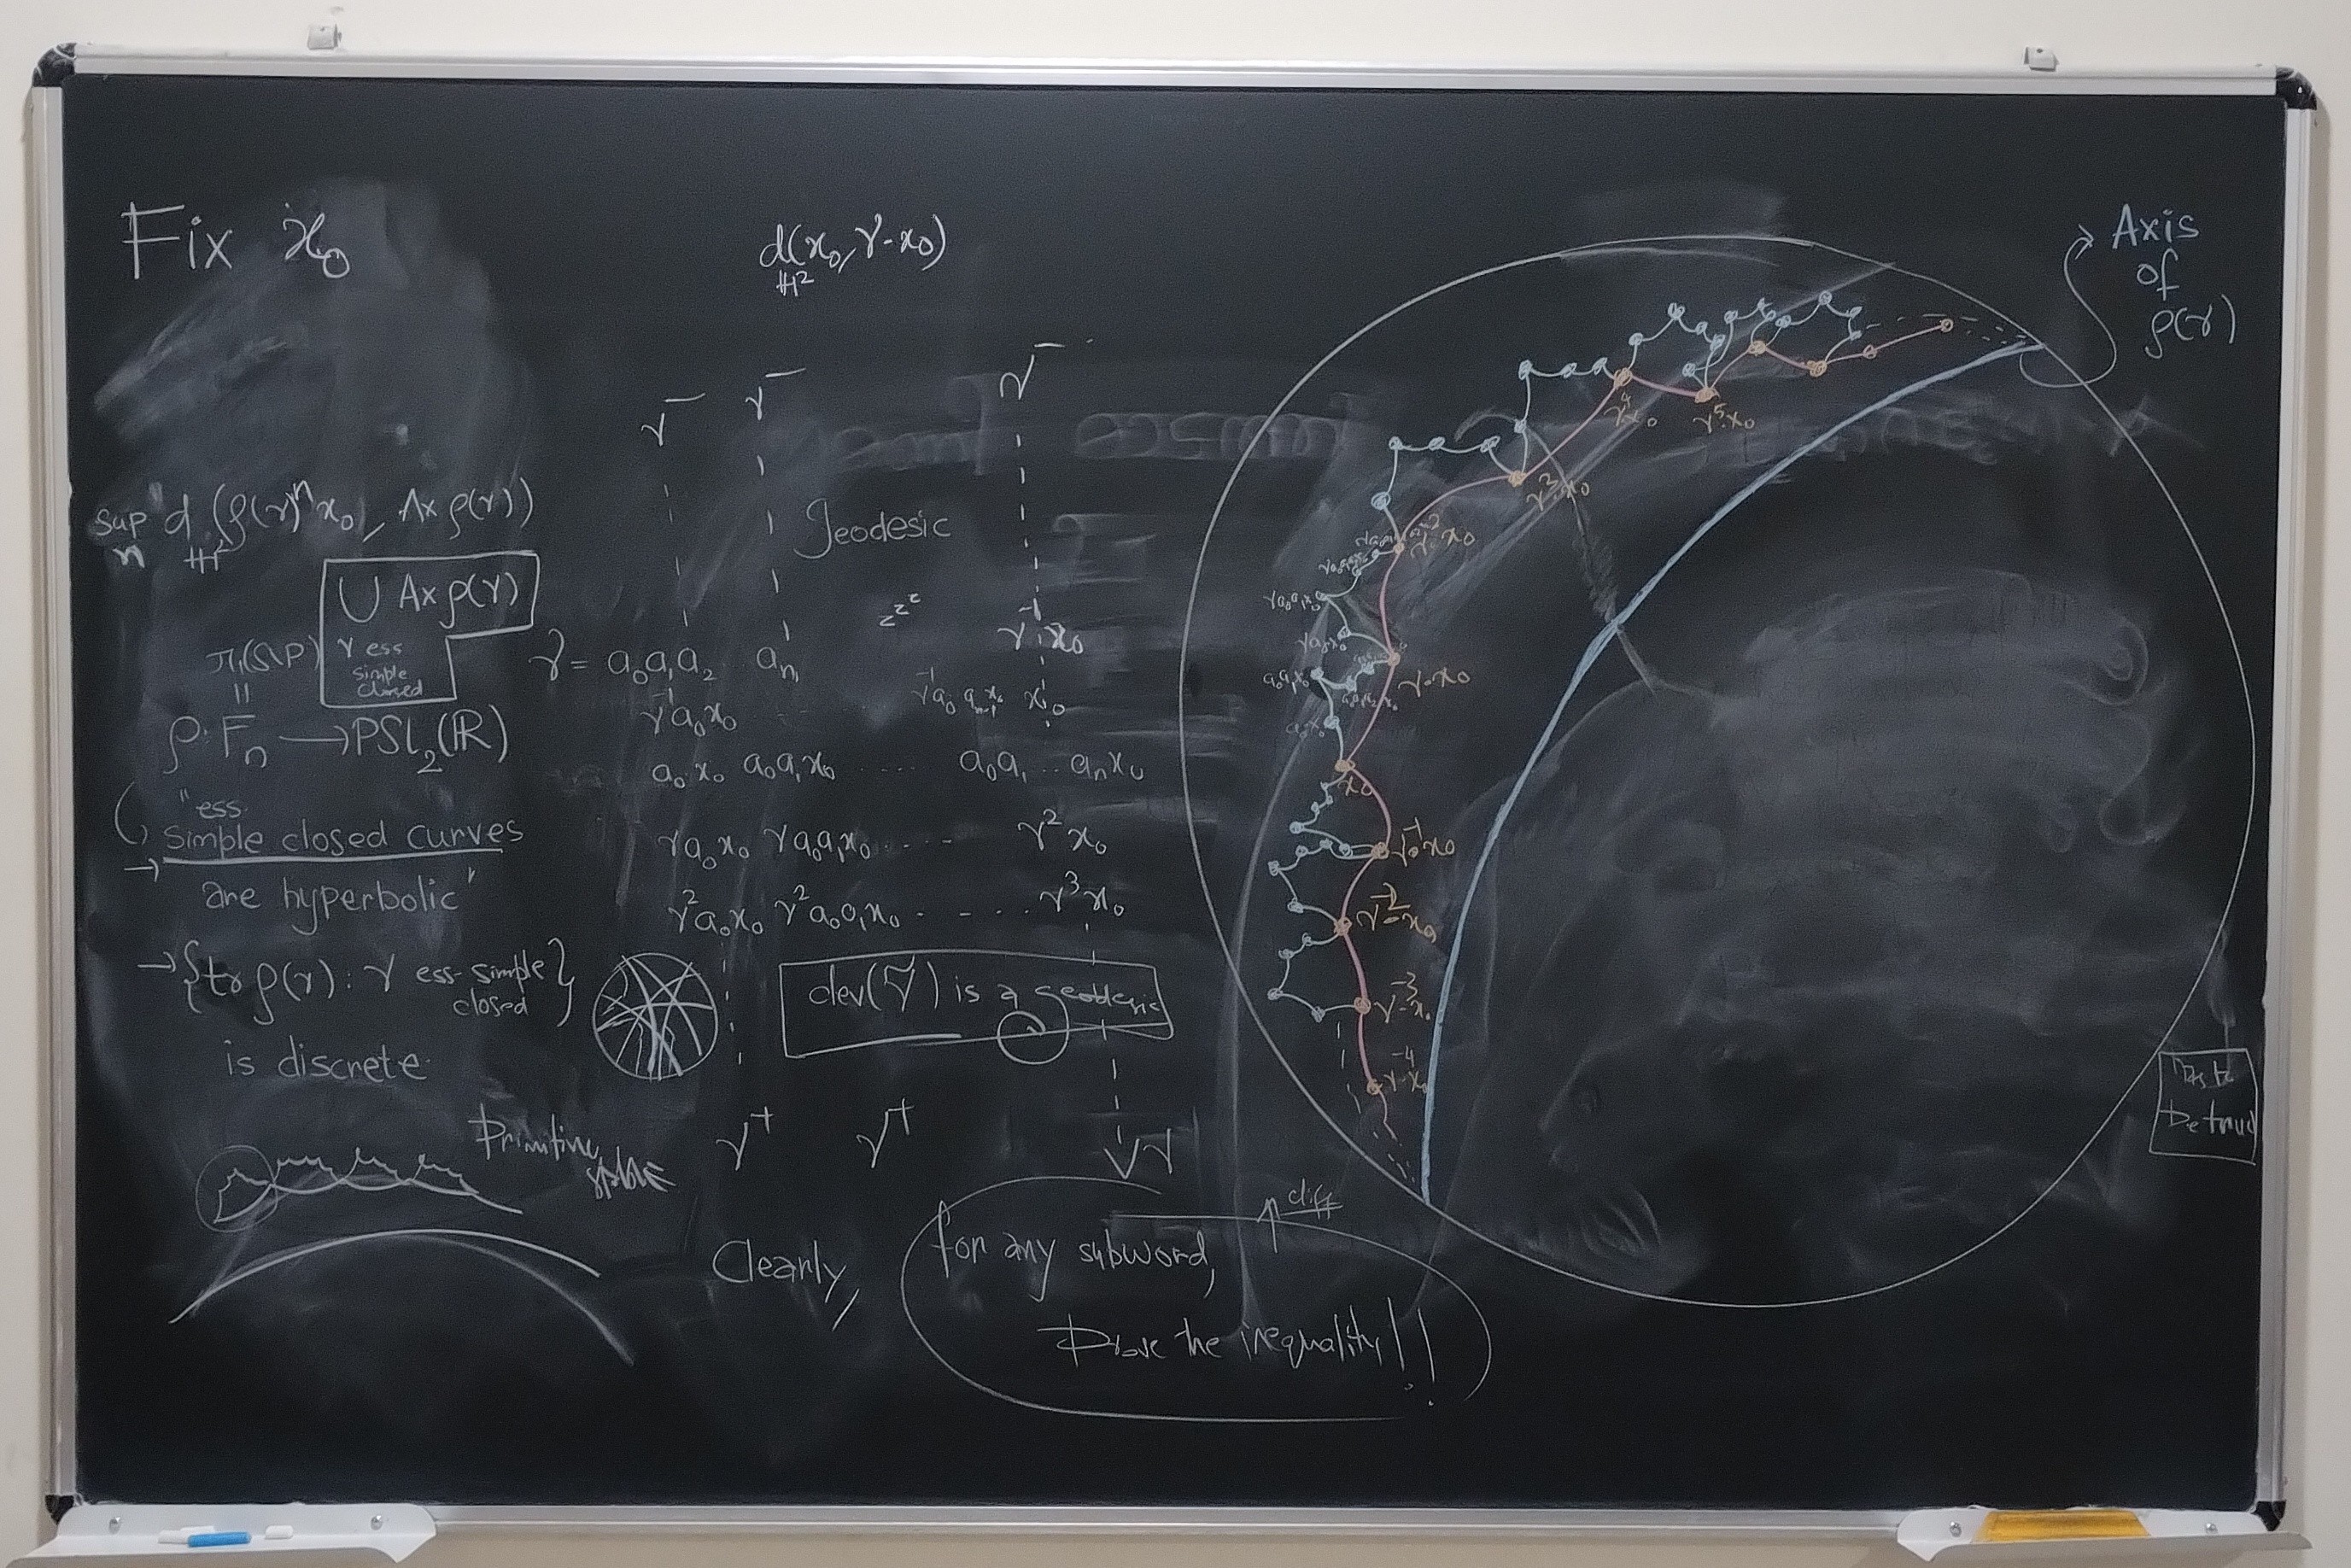 Fix x₀
d_{ℍ²}(x₀, γ·x₀)
γ⁻ γ⁻ γ⁻
sup_n d_{ℍ²}(ρ(γ)ⁿx₀, Ax ρ(γ))
⋃ Ax ρ(γ)
γ ess
simple
closed
π₁(S\P)
॥
ρ: F_n → PSL₂(ℝ)
"ess
simple closed curves
are hyperbolic"
→ {tr ρ(γ) : γ ess-simple closed}
is discrete.
Primitive
stable
geodesic
z z z
γ⁻¹x₀
γ = a₀a₁a₂ .. a_n
γ⁻¹a₀x₀ ..... γ⁻¹a₀ a_{n-1}x₀ x₀
a₀x₀ a₀a₁x₀ .... a₀a₁..a_nx₀
γa₀x₀ γa₀a₁x₀ .... γ²x₀
γ²a₀x₀ γ²a₀a₁x₀ . - ... γ³x₀
dev(γ̃) is a geodesic
γ⁺ γ⁺ γ⁺
Clearly,
for any subword,
diff
Prove the inequality!!
Axis
of
ρ(γ)
γ⁴·x₀
γ⁵·x₀
γ³·x₀
γ²·x₀
γa₀a₁x₀
γa₀x₀
γ·x₀
a₀a₁x₀
a₀a₁a₂x₀
a₀·x₀
x₀
γ⁻¹·x₀
γ⁻²·x₀
γ⁻³·x₀
γ⁻⁴·x₀